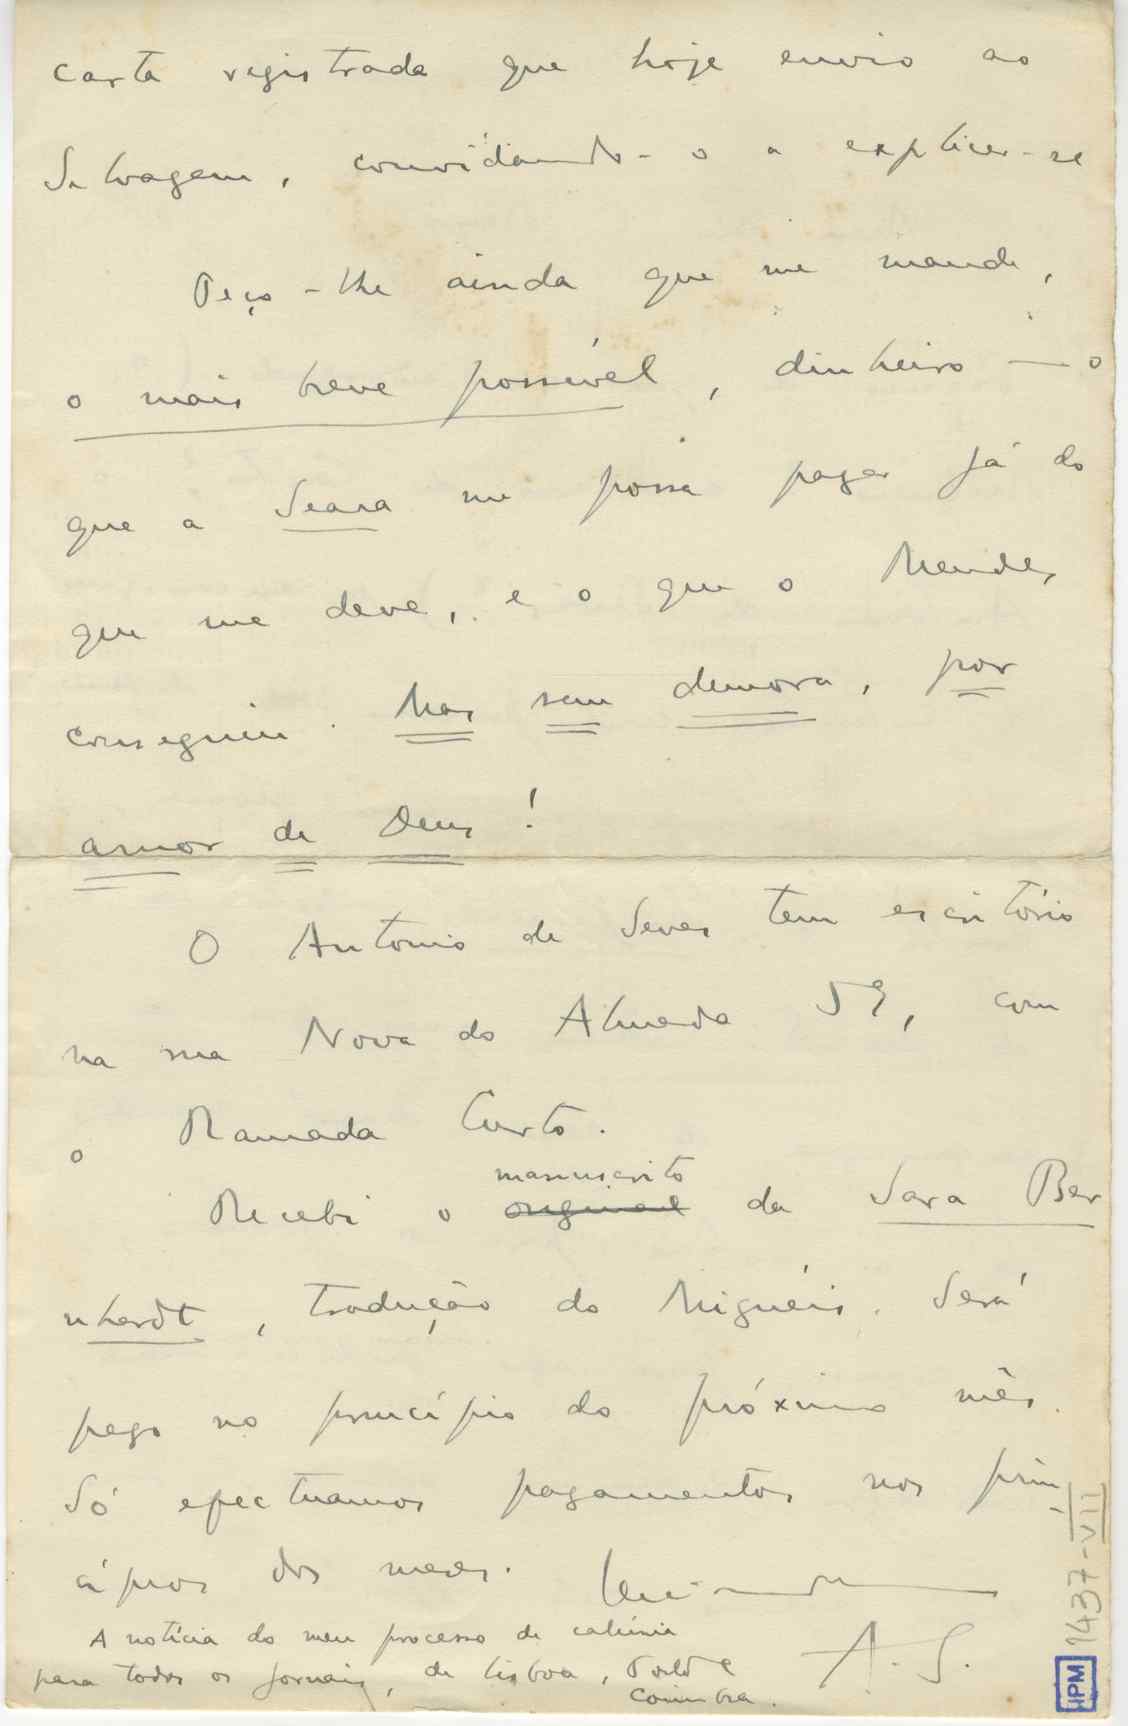 carta registrada que hoje envio ao
Selvagem, convidando-o a explicar-se
Peço-lhe ainda que me mande,
o mais breve possível, dinheiro — o
que a Seara me possa pagar já do
que me deve, e o que o Mendes
conseguiu. Mas sem demora, por
amor de Deus!
O Antonio de Seves tem escritório
na rua Nova do Almada 59, com
o Ramada Curto.
manuscrito
Recebi o original da Sara Ber
nhardt, tradução do Miguéis. Será
pago no princípio do próximo mês.
Só efectuamos pagamentos nos prin
cípios dos meses.
A. S.
A notícia do meu processo de calúnia
para todos os jornais, de Lisboa, Porto e
Coimbra.
1437-VII
IPM